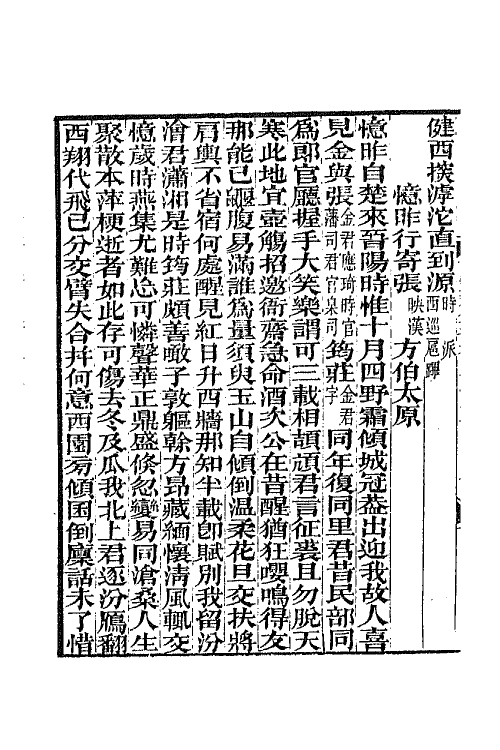 健西揆滹沱直到源時派西巡扈蹕
憶昨行寄張映漢方伯太原
憶昨自楚來晉陽時惟十月四野霜傾城冠葢出迎我故人喜
見金與張金君應琦時官藩司君官臬司筠莊金君字同年復同里君昔民部同
爲郎官廳握手大笑樂謂可三載相頡頏君言征裘且勿脫天
寒此地宜壺觴招邀衙齋急命酒次公在昔醒猶狂嚶鳴得友
那能已鼴腹易滿誰爲量須臾玉山自傾倒温柔花旦交扶將
肩輿不省宿何處醒見紅日升西牆那知半載卽賦別我留汾
澮君瀟湘是時筠莊頗善噉子敦軀榦方昂藏緬懷淸風輒交
憶歲時燕集尤難忘可憐聲華正鼎盛倏忽變易同滄桑人生
聚散本萍梗逝者如此存可傷去冬及瓜我北上君逐汾鴈翻
西翔代飛已分交臂失合幷何意西園旁傾囷倒廩話未了惜